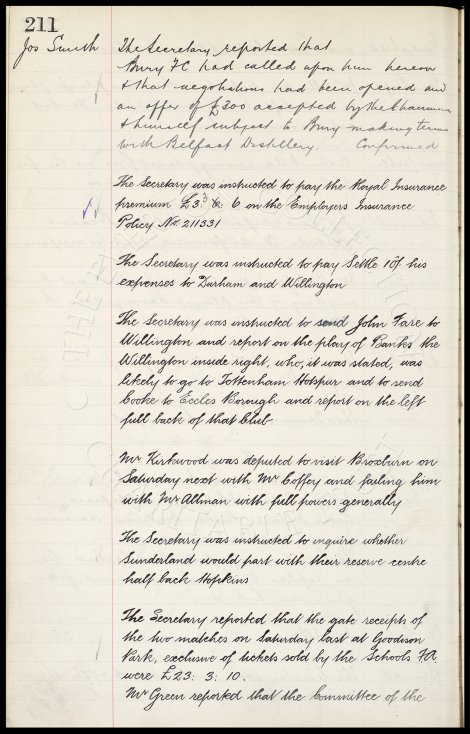 211
Jos Smith The Secretary reported that
Bury FC had called upon him hereon
& that negotiations had been opened and
an offer of £300 accepted by the Chairman
& himself subject to Bury making terms
with Belfast Distillery. Confirmed
The Secretary was instructed to pay the Royal Insurance
premium £3: 6 on the Employers Insurance
Policy No. 211331
The Secretary was instructed to pay Settle 10/- his
expenses to Durham and Willington
The Secretary was instructed to send John Fare to
Willington and report on the play of Banks the
Willington inside right, who, it was stated, was
likely to go to Tottenham Hotspur and to send
Cooke to Eccles Borough and report on the left
full back of that Club
Mr Kirkwood was deputed to visit Broxburn on
Saturday next with Mr Coffey and failing him
with Mr Allman with full powers generally
The Secretary was instructed to inquire whether
Sunderland would part with their reserve centre
half back Hopkins
The Secretary reported that the gate receipts of
the two matches on Saturday last at Goodison
Park, exclusive of tickets sold by the Schools F.A.
were £23: 3: 10.
Mr Green reported that the Committee of the